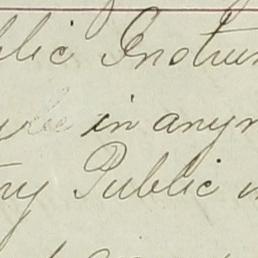 blic Instrum
be in any m
ry Public in